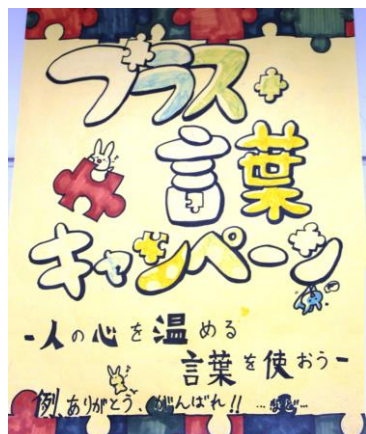 プラス
言葉
キャンペーン
-人の心を温める
言葉を使おう-
例、ありがとう、がんばれ!! …など…